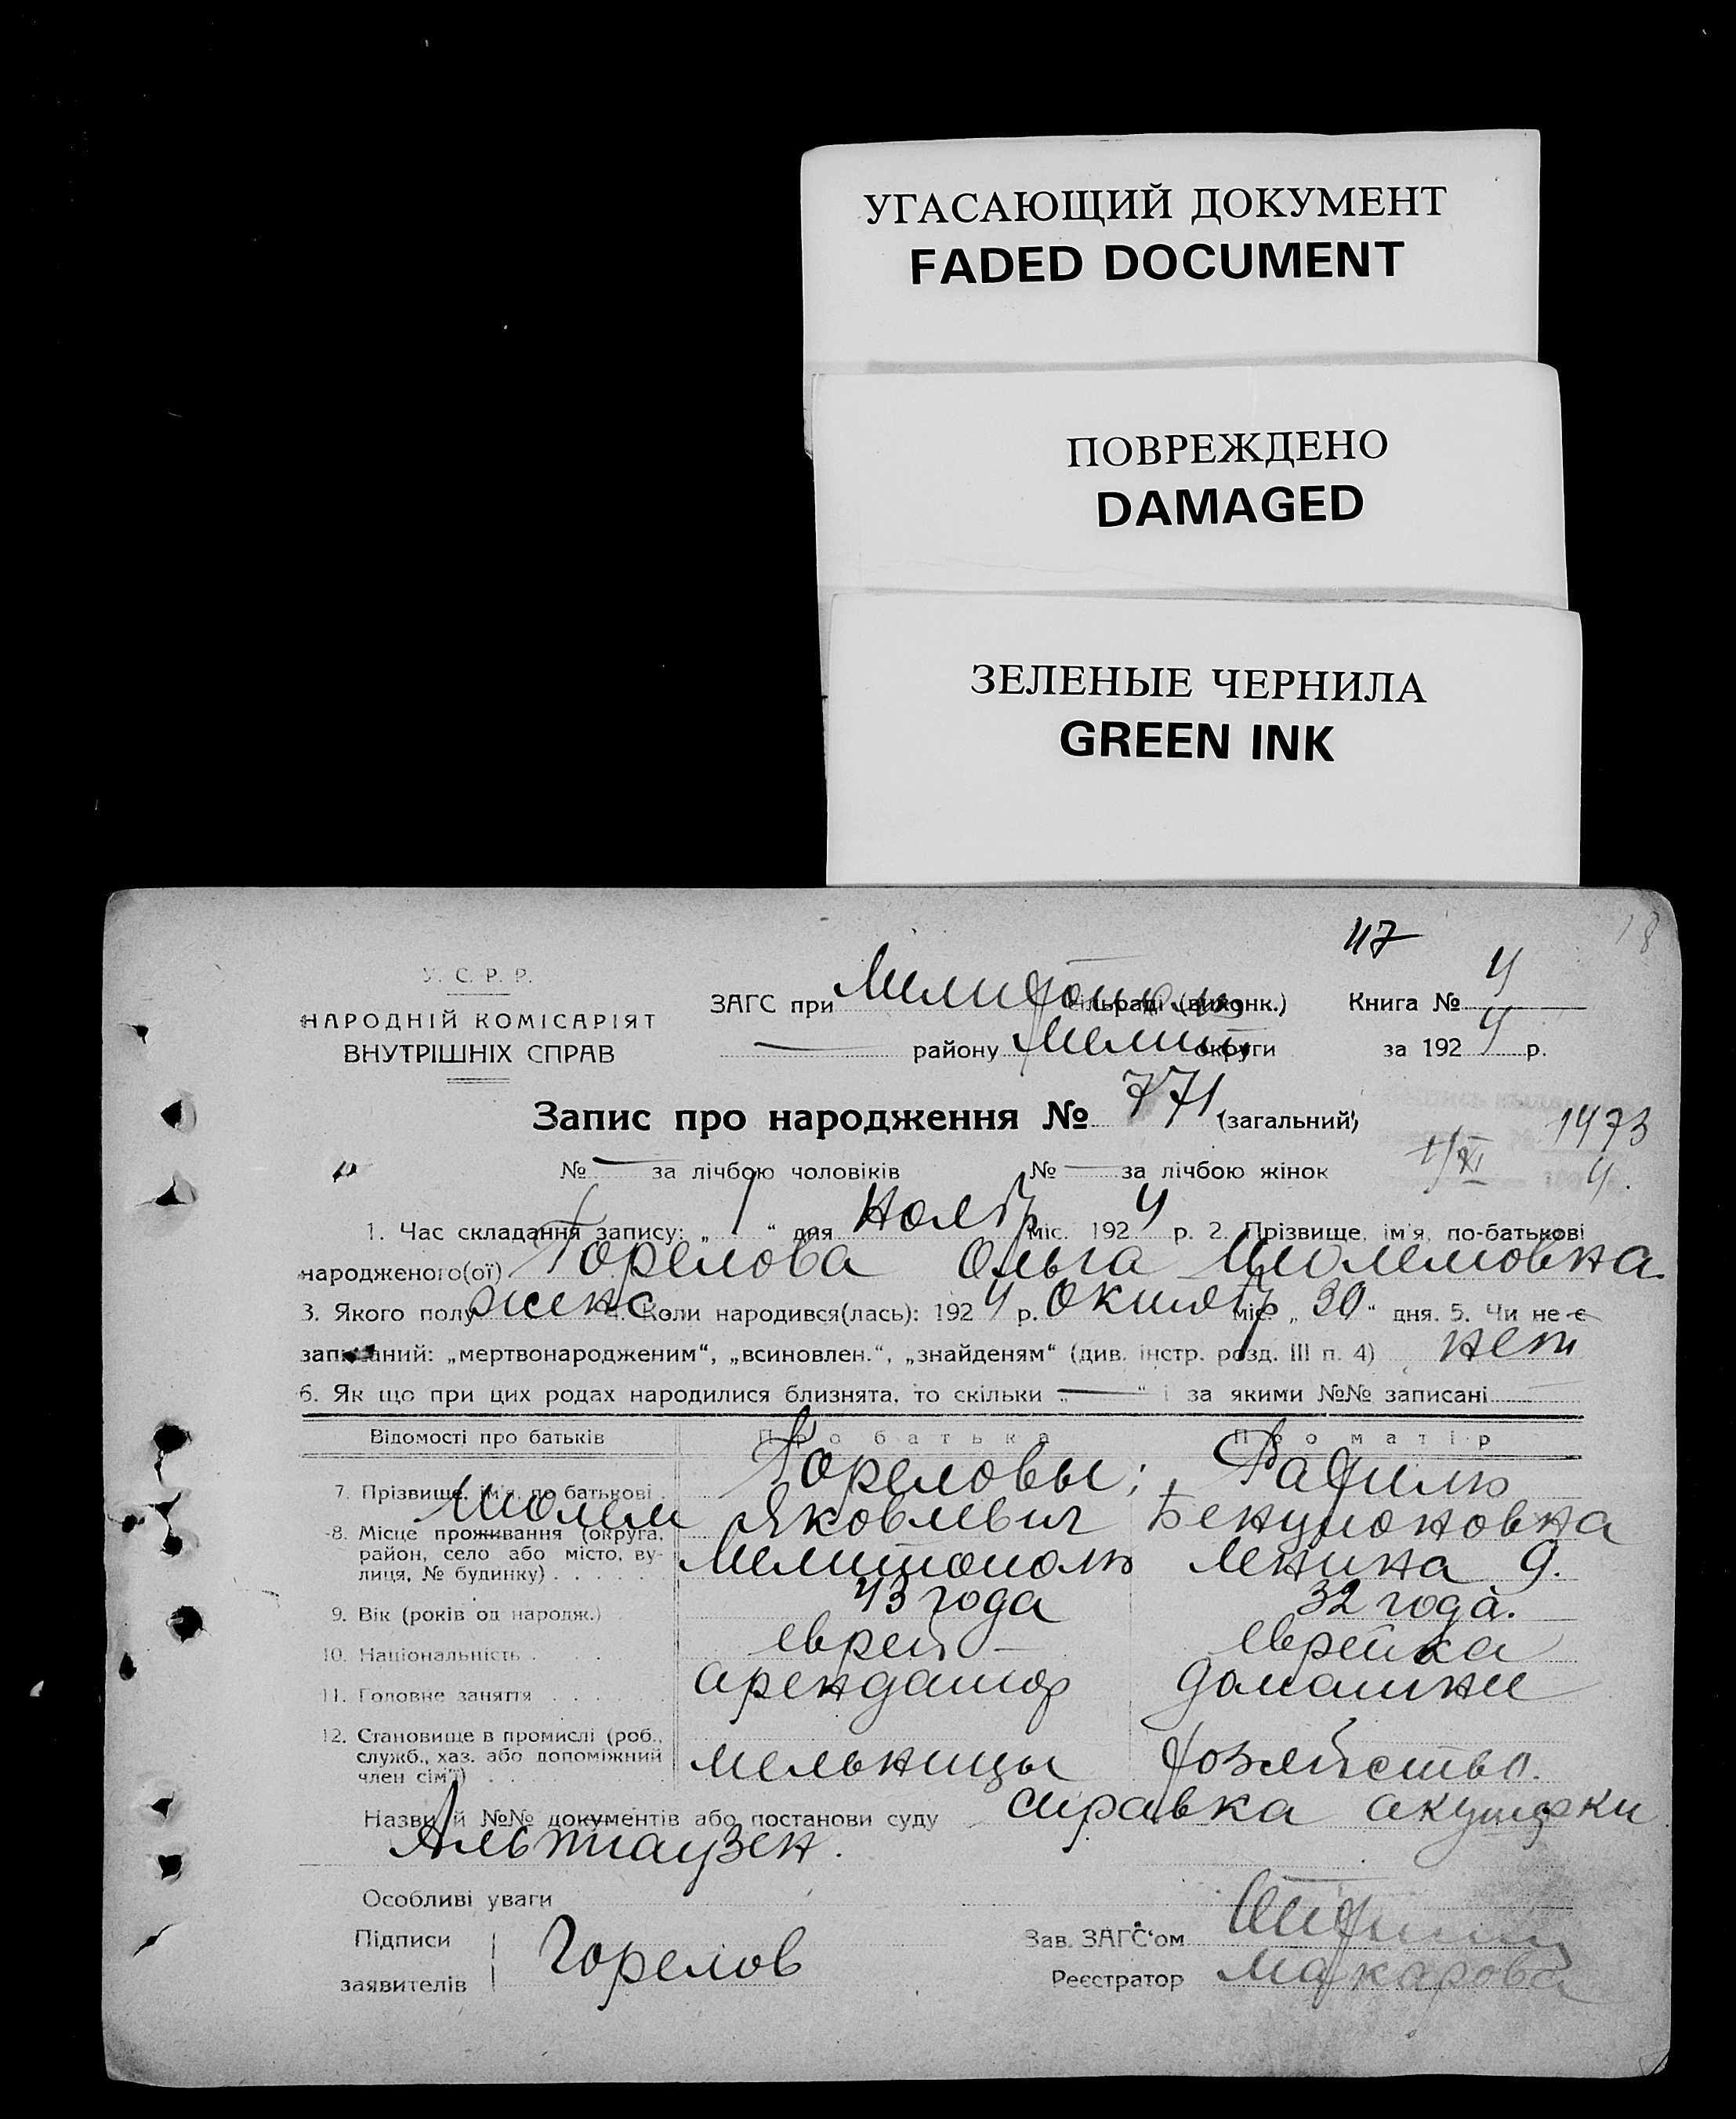 УГАСАЮЩИЙ ДОКУМЕНТ
FADED DOCUMENT
ПОВРЕЖДЕНО
DAMAGED
ЗЕЛЕНЫЕ ЧЕРНИЛА
GREEN INK
117
18
У. С. Р. Р.
НАРОДНІЙ КОМІСАРІЯТ
ВНУТРІШНІХ СПРАВ
ЗАГС при Мелитополь сільраді (виконк.) Книга № 4
району Мелит округи за 1924 р.
Запис про народження № 771 (загальний)
1473
№ — за лічбою чоловіків № — за лічбою жінок 1/XI 4.
1. Час складання запису: „ 1 “ дня Ноябр міс. 1924 р. 2. Прізвище, ім'я, по-батькові
народженого(ої) Горелова Ольга Шолемовна.
3. Якого полу женс. 4. Коли народився(лась): 1924 р. Октябр міс. „ 30 “ дня. 5. Чи не є
записаний: „мертвонародженим“, „всиновлен.“, „знайденям“ (див. інстр. розд. III п. 4) нет
6. Як що при цих родах народилися близнята, то скільки „ — “ і за якими №№ записані
Відомості про батьків Про батька Про матір
7. Прізвище, ім'я, по батькові Гореловы; Рахиль
Шолем Яковлевич Бенционовна
8. Місце проживання (округа, район, село або місто, вулиця, № будинку) Мелитополь Ленина 9.
9. Вік (років од народж.) 43 года 32 года.
10. Національність еврей еврейка
11. Головне заняття арендатор домашнее
12. Становище в промислі (роб., служб., хаз. або допоміжний член сім'ї) мельницы хозяйство.
Назви й №№ документів або постанови суду справка акушерки
Альтгаузен.
Особливі уваги
Підписи
заявителів Горелов
Зав. ЗАГС'ом
Реєстратор Макарова